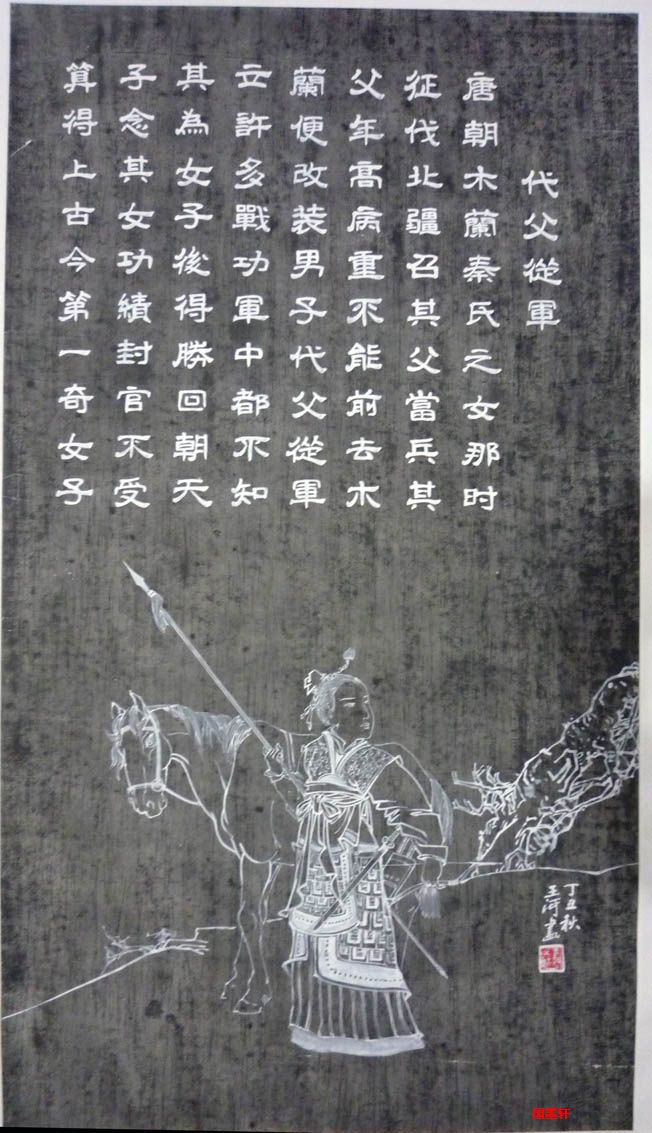 代父從軍
唐朝木蘭秦氏之女那时
征伐北疆召其父當兵其
父年高病重不能前去木
蘭便改装男子代父從軍
立許多戰功軍中都不知
其為女子後得勝回朝天
子念其女功績封官不受
算得上古今第一奇女子
丁丑秋
王河畫
國墨轩